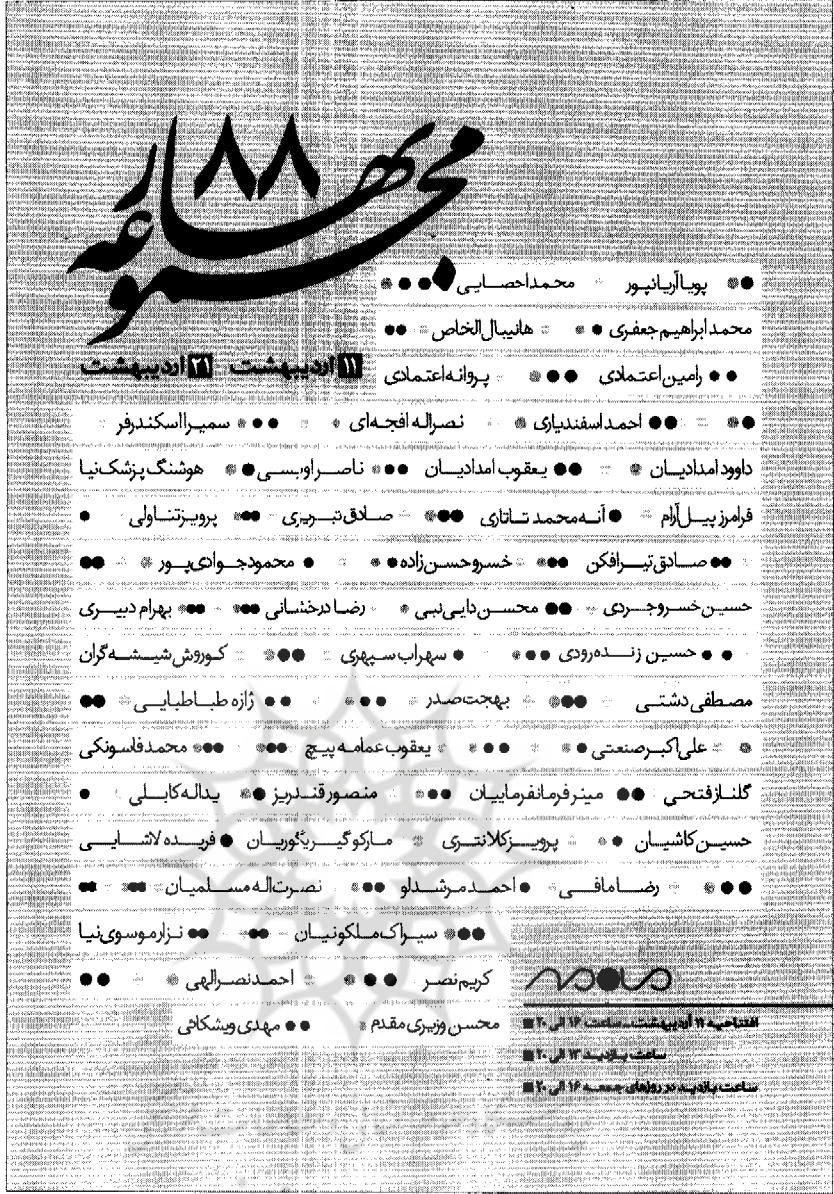 مجموعه بهار ۸۸
۱۱ اردیبهشت ۲۱ اردیبهشت
پویا آریانپور محمد احصایی
محمد ابراهیم جعفری هانیبال الخاص
رامین اعتمادی پروانه اعتمادی
احمد اسفندیاری نصراله افجه‌ای سمیرا اسکندرفر
داوود امدادیان یعقوب امدادیان ناصر اویسی هوشنگ پزشک‌نیا
فرامرز پیل‌آرام آنه محمد تاتاری صادق تبریزی پرویز تناولی
صادق تیرافکن خسرو حسن‌زاده محمود جوادی‌پور
حسین خسروجردی محسن دایی‌نبی رضا درخشانی بهرام دبیری
حسین زنده‌رودی سهراب سپهری کوروش شیشه‌گران
مصطفی دشتی بهجت صدر ژازه طباطبایی
علی‌اکبر صنعتی یعقوب عمامه پیچ محمد فاسونکی
گلناز فتحی منیر فرمانفرماییان منصور قندریز یداله کابلی
حسین کاشیان پرویز کلانتری مارکو گیریگوریان فریده لاشایی
رضا مافی احمد مرشدلو نصرت‌اله مسلمیان
سیراک ملکونیان نزار موسوی‌نیا
کریم نصر احمد نصرالهی
محسن وزیری مقدم مهدی ویشکائی
افتتاحیه ۱۱ اردیبهشت ـ ساعت ۱۶ الی ۲۰
ساعت بازدید ۱۳ الی ۲۰
ساعت بازدید در روزهای جمعه ۱۶ الی ۲۰